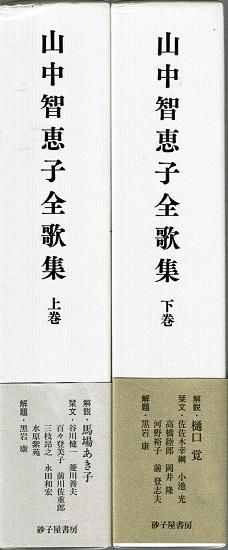 山中智恵子全歌集 下巻
解説・樋口 覚
栞文・佐佐木幸綱 小池 光
高橋睦郎 岡井 隆
河野裕子 前 登志夫
解題・黒岩 康
砂子屋書房
山中智恵子全歌集 上巻
解説・馬場あき子
栞文・谷川健一 菱川善夫
百々登美子 前川佐重郎
三枝昻之 永田和宏
水原紫苑
解題・黒岩 康
砂子屋書房